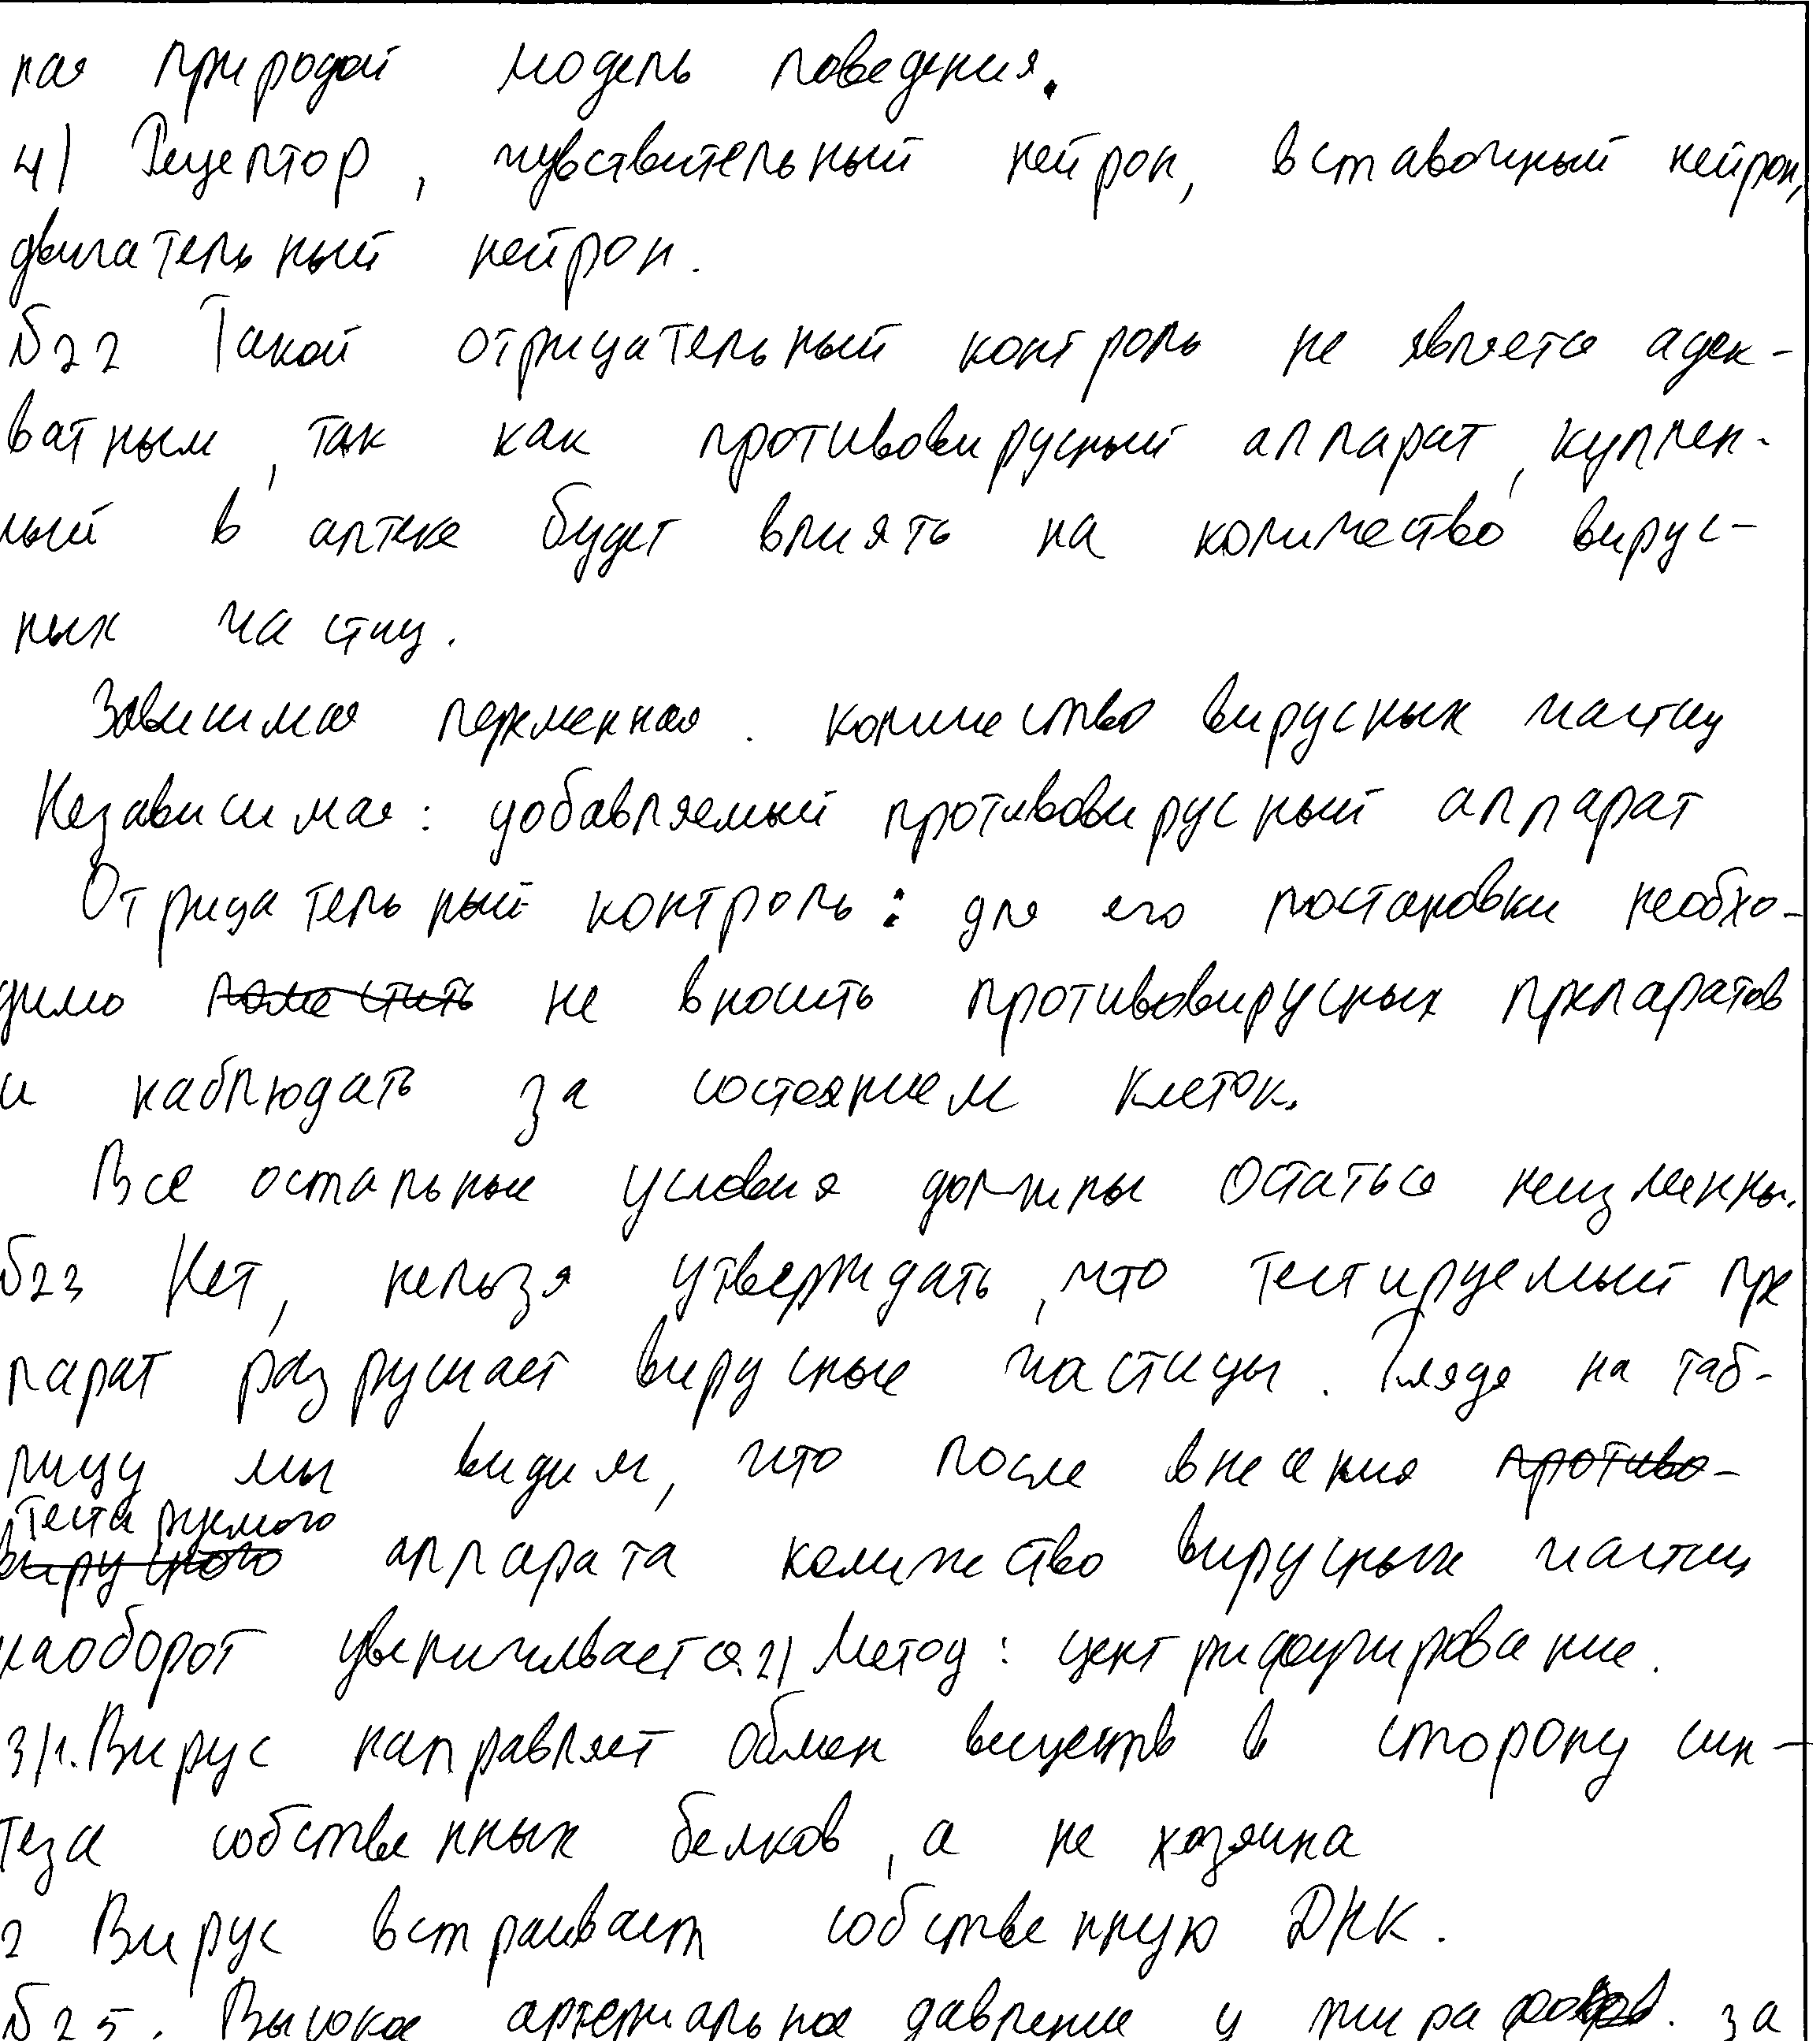 ная природой модель поведения.
4) Рецептор, чувствительный нейрон, вставочный нейрон,
двигательный нейрон.
№22 Такой отрицательный контроль не является адек-
ватным, так как противовирусный аппарат, куплен-
ный в аптеке будет влиять на количество вирус-
ных частиц.
Зависимая переменная. количество вирусных частиц
Независимая: добавляемый противовирусный аппарат
Отрицательный контроль: для его постановки необхо-
димо поместить не вносить противовирусных препаратов
и наблюдать за состоянием клеток.
Все остальные условия должны остаться неизменны.
№23 Нет, нельзя утверждать, что тестируемый пре
парат разрушает вирусные частицы. Глядя на таб-
лицу мы видим, что после внесения противо-
тестируемого
вирусного аппарата количество вирусных частиц
наоборот увеличивается. 2) Метод: центрифугирование.
3) 1. Вирус направляет обмен веществ в сторону син-
теза собственных белков, а не хозяина
2 Вирус встраивает собственную ДНК.
№25. Высокое артериальное давление у за